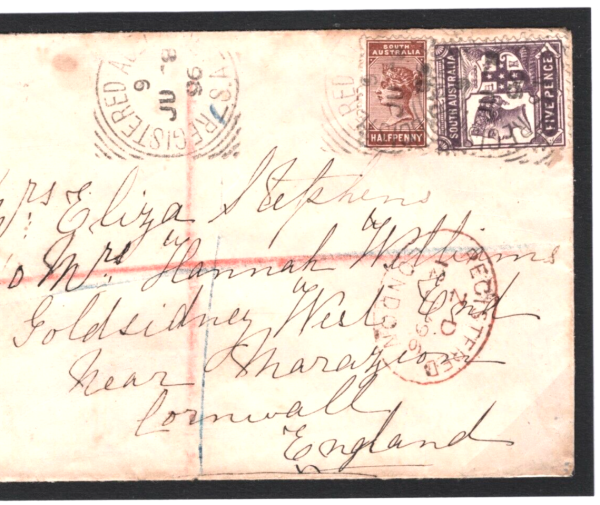 REGISTERED
8 JU
96
6
S.A.
SOUTH AUSTRALIA
HALFPENNY
SOUTH AUSTRALIA
FIVE PENCE
Mrs Eliza Stephens
Mrs Hannah Williams
Goldsidney West End
Near Marazion
Cornwall
England
REGISTERED
LONDON
96